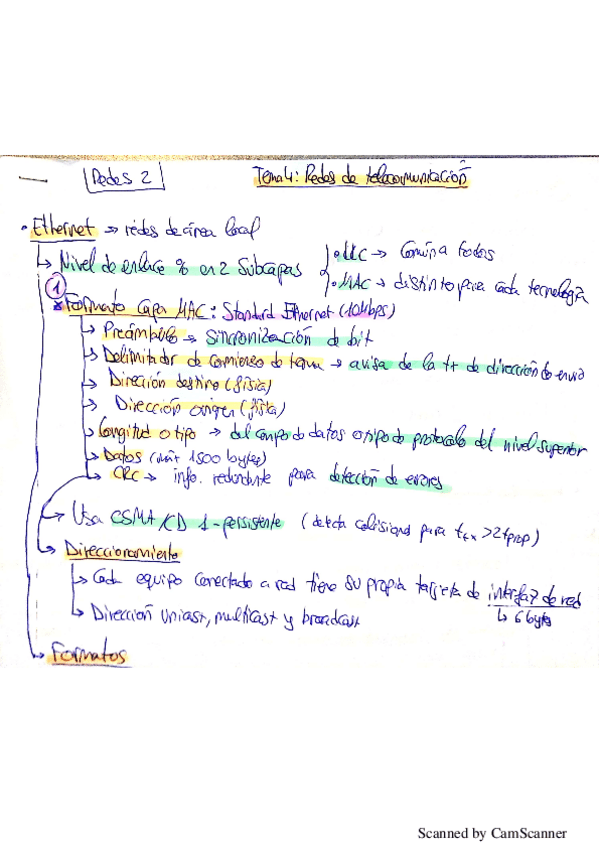 Redes 2
Tema 4: Redes de telecomunicación
• Ethernet → redes de área local
↳ Nivel de enlace % en 2 subcapas
• LLC → Común a todas
• MAC → distinto para cada tecnología
① * Formato capa MAC: Standard Ethernet (10Mbps)
↳ Preámbulo → sincronización de bit
↳ Delimitador de comienzo de trama → avisa de la tx de dirección de envío
↳ Dirección destino (física)
↳ Dirección origen (física)
↳ Longitud o tipo → del campo de datos o tipo de protocolo del nivel superior
↳ Datos (máx 1500 bytes)
↳ CRC → info. redundante para detección de errores
↳ Usa CSMA/CD 1-persistente (detecta colisiones para ttx > 2tprop)
↳ Direccionamiento
↳ Cada equipo conectado a red tiene su propia tarjeta de interfaz de red
↳ 6 bytes
↳ Dirección unicast, multicast y broadcast
↳ Formatos
Scanned by CamScanner